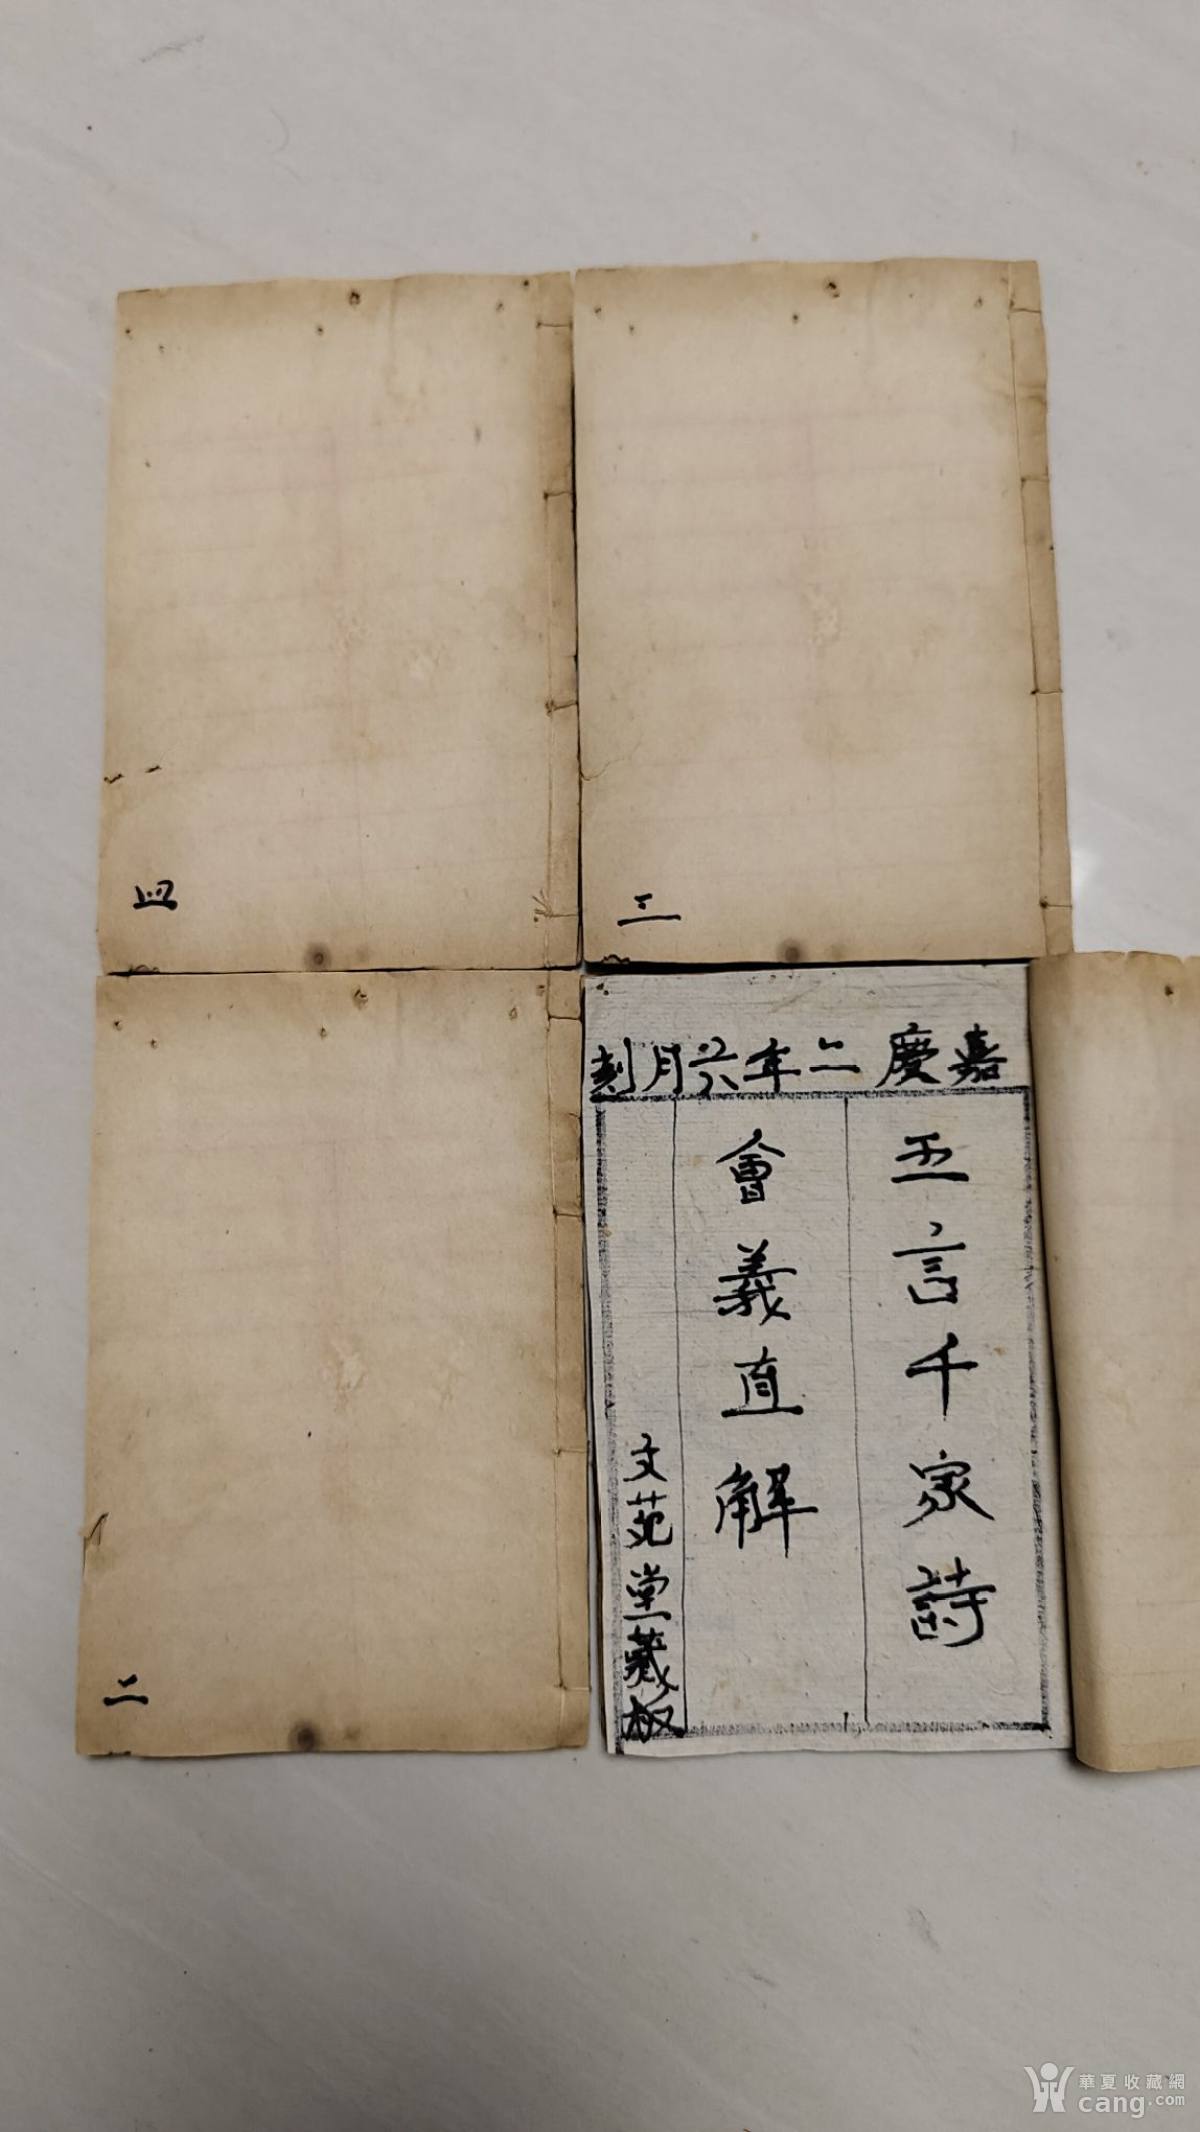 四
三
二
嘉慶二年六月刻
五言千家詩
會義直解
文苑堂藏板
華夏收藏網
cang.com